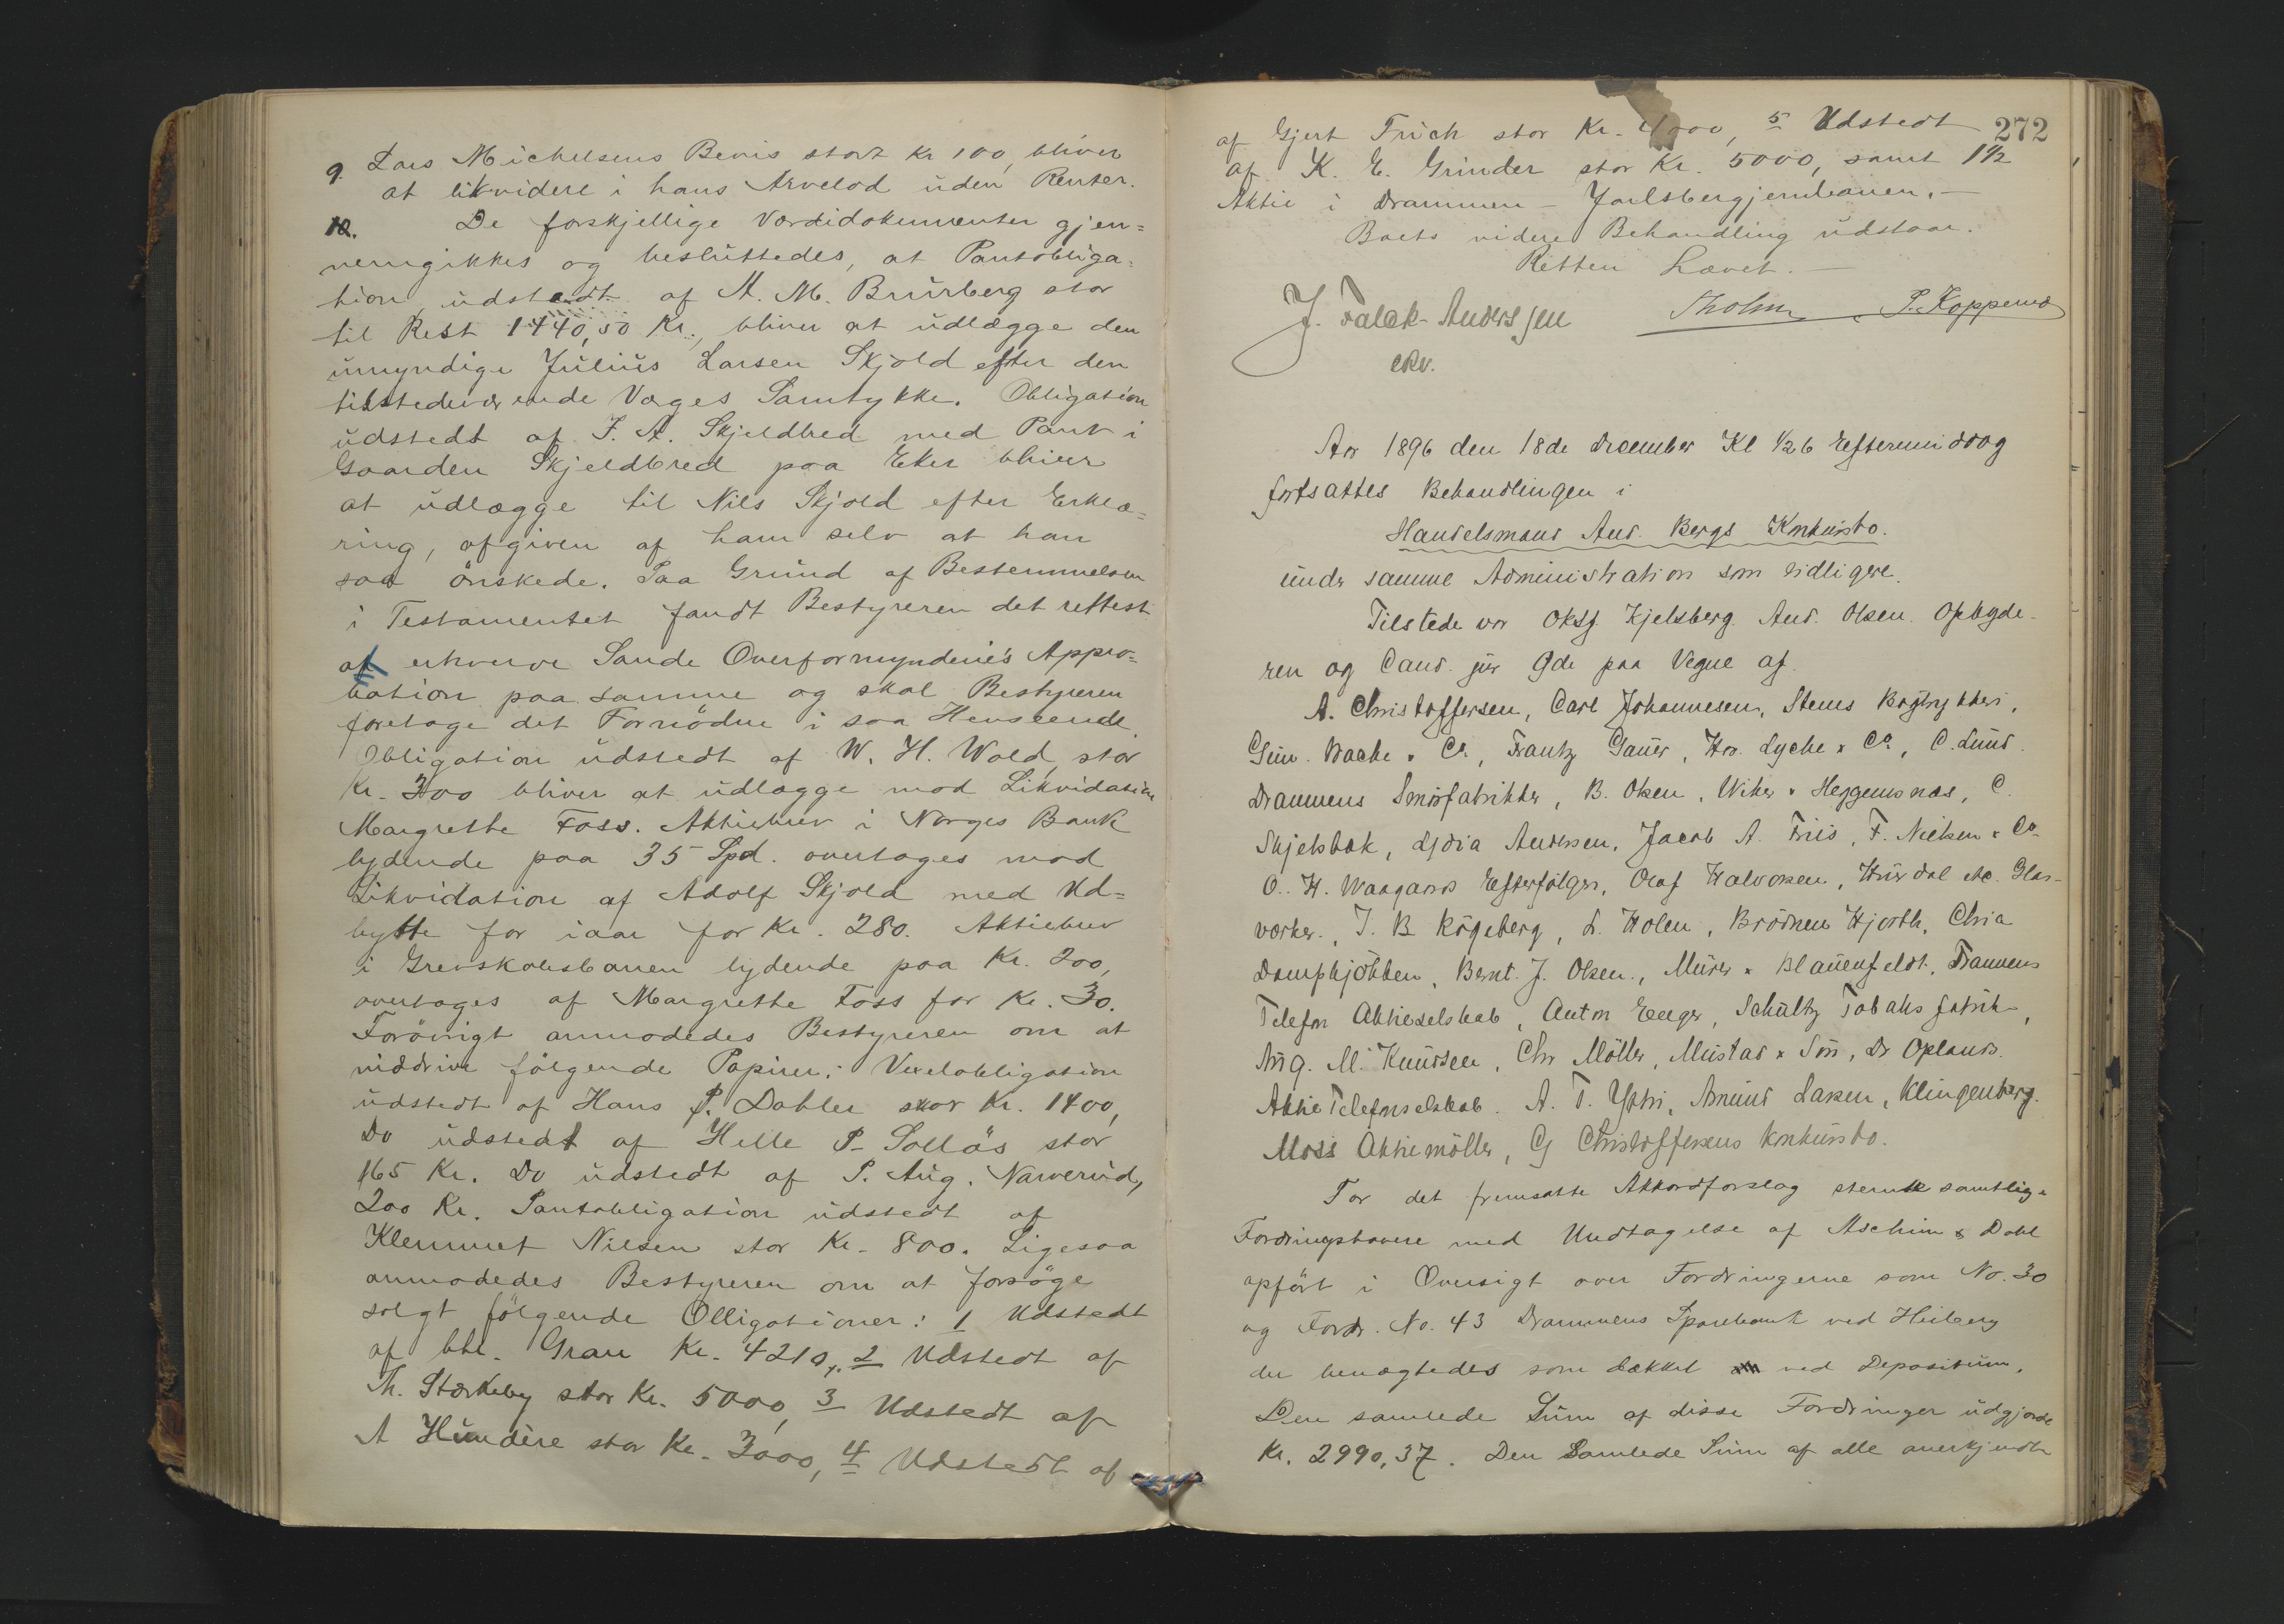 9. Lars Michelsens Bevis stort Kr 100, bliver
at likvidere i hans Arvelod uden Renter.
10. De forskjellige Værdidokumenter gjen=
nemgikkes og besluttedes, at Pantobliga=
tion, udstedt af A. M. Brurberg stor
til Rest 1440,50 Kr., bliver at udlægge den
umyndige Julius Larsen Skjold efter den
tilstedeværende Værges Samtykke. Obligation
udstedt af J. A. Skjeldbred med Pant i
Gaarden Skjeldbred paa Eker bliver
at udlægge til Nils Skjold efter Erklæ=
ring, afgiven af ham selv at han
saa önskede. Paa Grund af Bestemmelsen
i Testamentet fandt Bestyreren det rettest
at erhverve Sande Overformynderie's Appro=
bation paa samme og skal Bestyreren
foretage det Fornödne i saa Henseende.
Obligation udstedt af W. H. Wold, stor
Kr. 300 bliver at udlægge mod Likvidation
Margrethe Foss. Aktiebrev i Norges Bank
lydende paa 35 Spd. overtages mod
Likvidation af Adolf Skjold med Ud=
bytte for iaar for Kr. 280. Aktiebrev
i Grevskabsbanen lydende paa Kr. 200,
overtages af Margrethe Foss for Kr. 30.
Forövrigt anmodedes Bestyreren om at
inddrive fölgende Papirer: Vexelobligation
udstedt af Hans P. Dahler stor Kr. 1400,
Do udstedt af Helle P. Sollös stor
165 Kr. Do udstedt af P. Aug. Narverud,
200 Kr. Pantobligation udstedt af
Klemmet Nilsen stor Kr. 800. Ligesaa
anmodedes Bestyreren om at forsöge
solgt fölgende Obligationer: 1 Udstedt
af Chr. Gran Kr. 4210, 2 Udstedt af
Th. Størkeby stor Kr. 5000, 3 Udstedt af
A Hundere stor Kr. 3000, 4 Udstedt af
272
af Gjert Frich stor Kr. 4000, 5 Udstedt
af K. E. Grinder stor Kr. 5000, samt 1 1/2
Aktie i Drammen - Jarlsbergjernbanen. —
Boets videre Behandling udstaar.
Retten Hævet. —
J. Falck-Andersen Tholm P. Koppernæs
ckv.
Aar 1896 den 18de December Kl 1/2 6 Eftermiddag
fortsattes Behandlingen i
Handelsmand And. Bergs Konkursbo.
under samme Administration som tidligere.
Tilstede var Oksf. Kjelsberg. And. Olsen. Opbyde-
ren og Cand. jur Gde paa Vegne af.
A. Christoffersen, Carl Johannesen, Steens Bogtrykkeri,
Gun. Bache & Co, Frantz Gauer, Hrr. Lyche & Co, C. Lund.
Drammens Smörfabrikker, B. Olsen, Wiker & Heggensnæs, C.
Skjelsbæk, Lydia Andersen, Jacob A. Friis, F. Nielsen & Co
O. H. Waagaards Efterfölger, Olaf Halvorsen, Hurdal etc. Glas-
værker, J. B Rögeberg, L. Holen, Brödrene Hjorth, Chria
Dampkjökken, Bernt J. Olsen, Murer & Blauenfeldt, Drammens
Telefon Aktieselskab, Anton Eeeger, Schultz Tobaksfabrik,
Aug. M. Knudsen, Chr Möller, Mustad & Sön, Dr Oplands.
Aktie Telefonselskab. A. T. Yttri, Amund Larsen, Klingenberg.
Moss Aktiemölle, G Christoffersens Konkursbo.
For det fremsatte Akkordforslag stemte samtlige
Fordringshavere med Undtagelse af Aschim & Dahl
opfört i Oversigt over Fordringerne som No. 30
og Fordr. No. 43 Drammens Sparebank ved Heiberg
der benægtedes som dækket ved Depositum.
Den samlede Sum af disse Fordringer udgjorde
Kr. 2990,37. Den Samlede Sum af alle anerkjendte